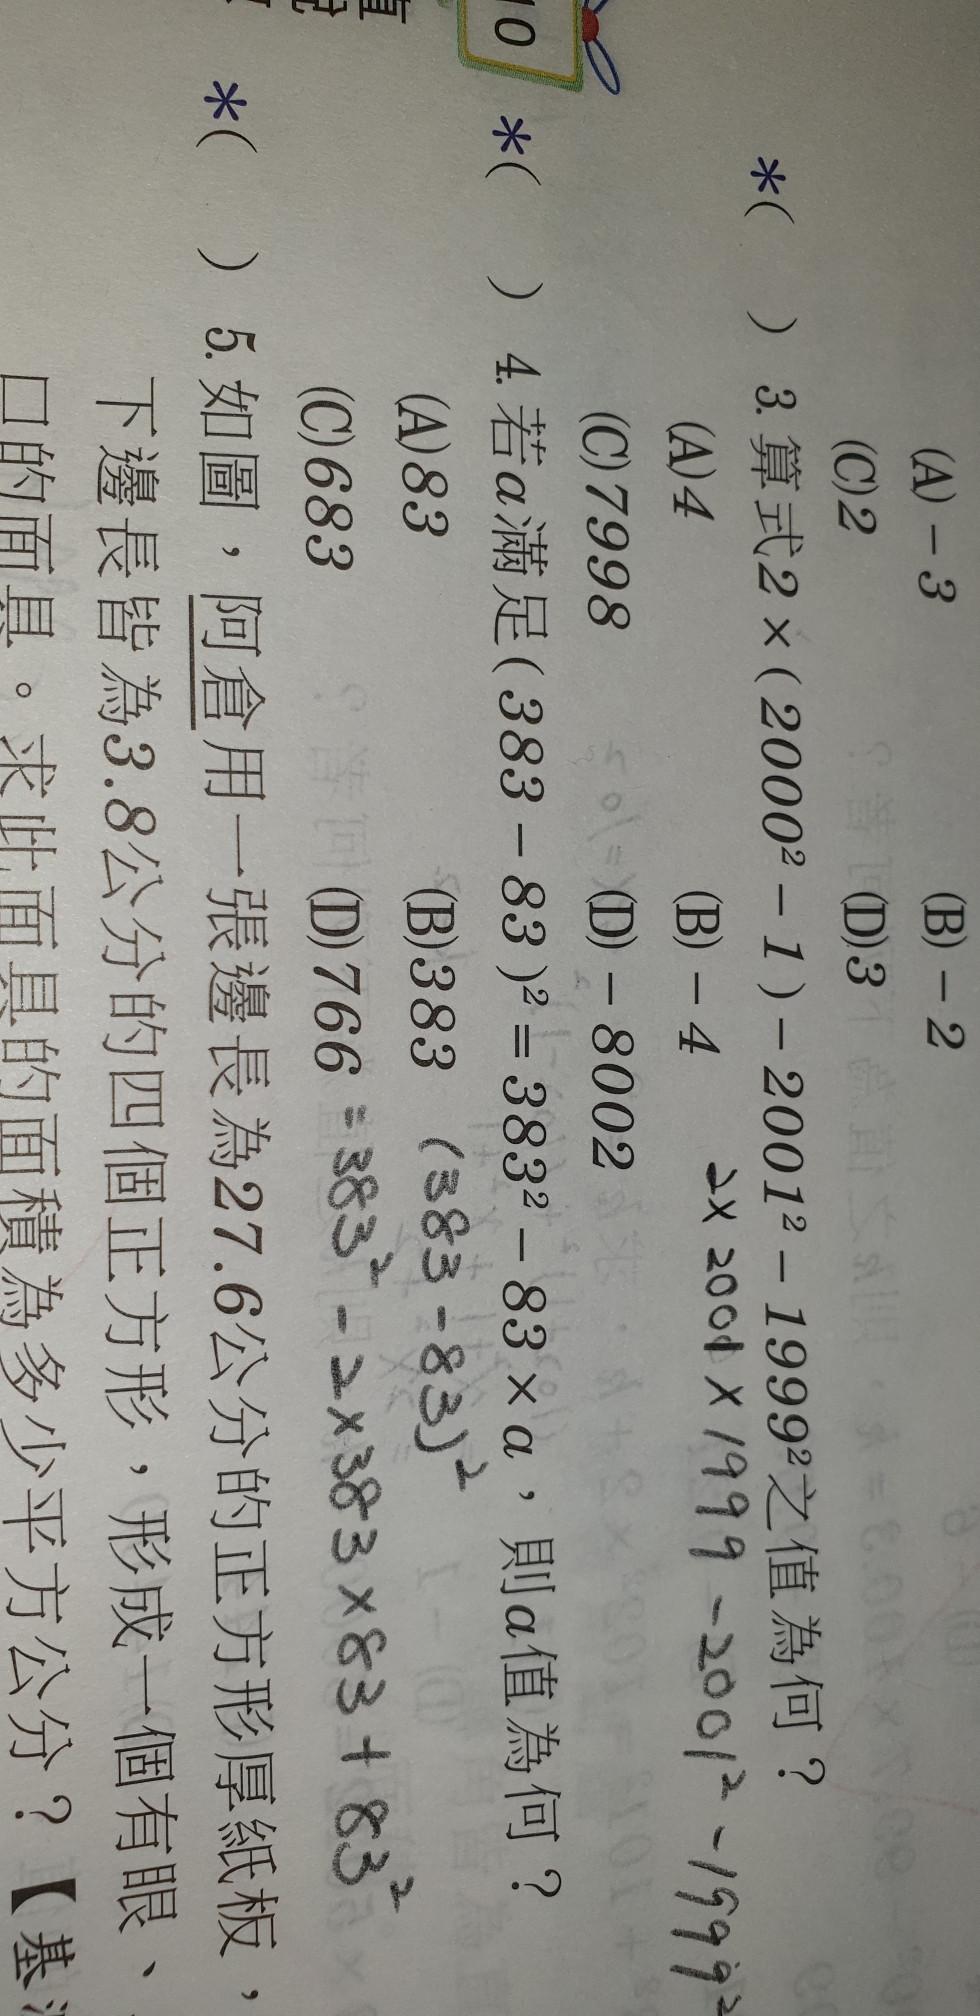 (A)－3 (B)－2
(C)2 (D)3
*( ) 3. 算式2×(2000²－1)－2001²－1999²之值為何？
(A)4 (B)－4 2×2001×1999-2001²-1999²
(C)7998 (D)－8002
10
*( ) 4. 若a滿足(383－83)²＝383²－83×a，則a值為何？
(A)83 (B)383 (383-83)²
(C)683 (D)766 =383²-2×383×83+83²
*( ) 5. 如圖，阿倉用一張邊長為27.6公分的正方形厚紙板，
下邊長皆為3.8公分的四個正方形，形成一個有眼、
口的面具。求此面具的面積為多少平方公分？【基